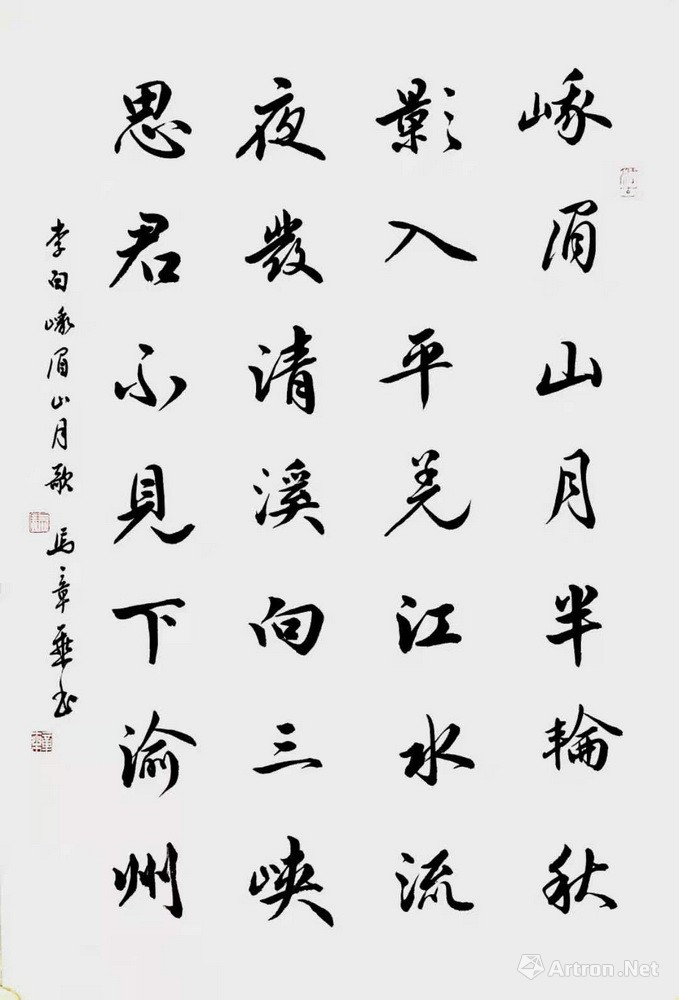 峨眉山月半輪秋
影入平羌江水流
夜發清溪向三峽
思君不見下渝州
李白峨眉山月歌 馬章書
Artron.Net